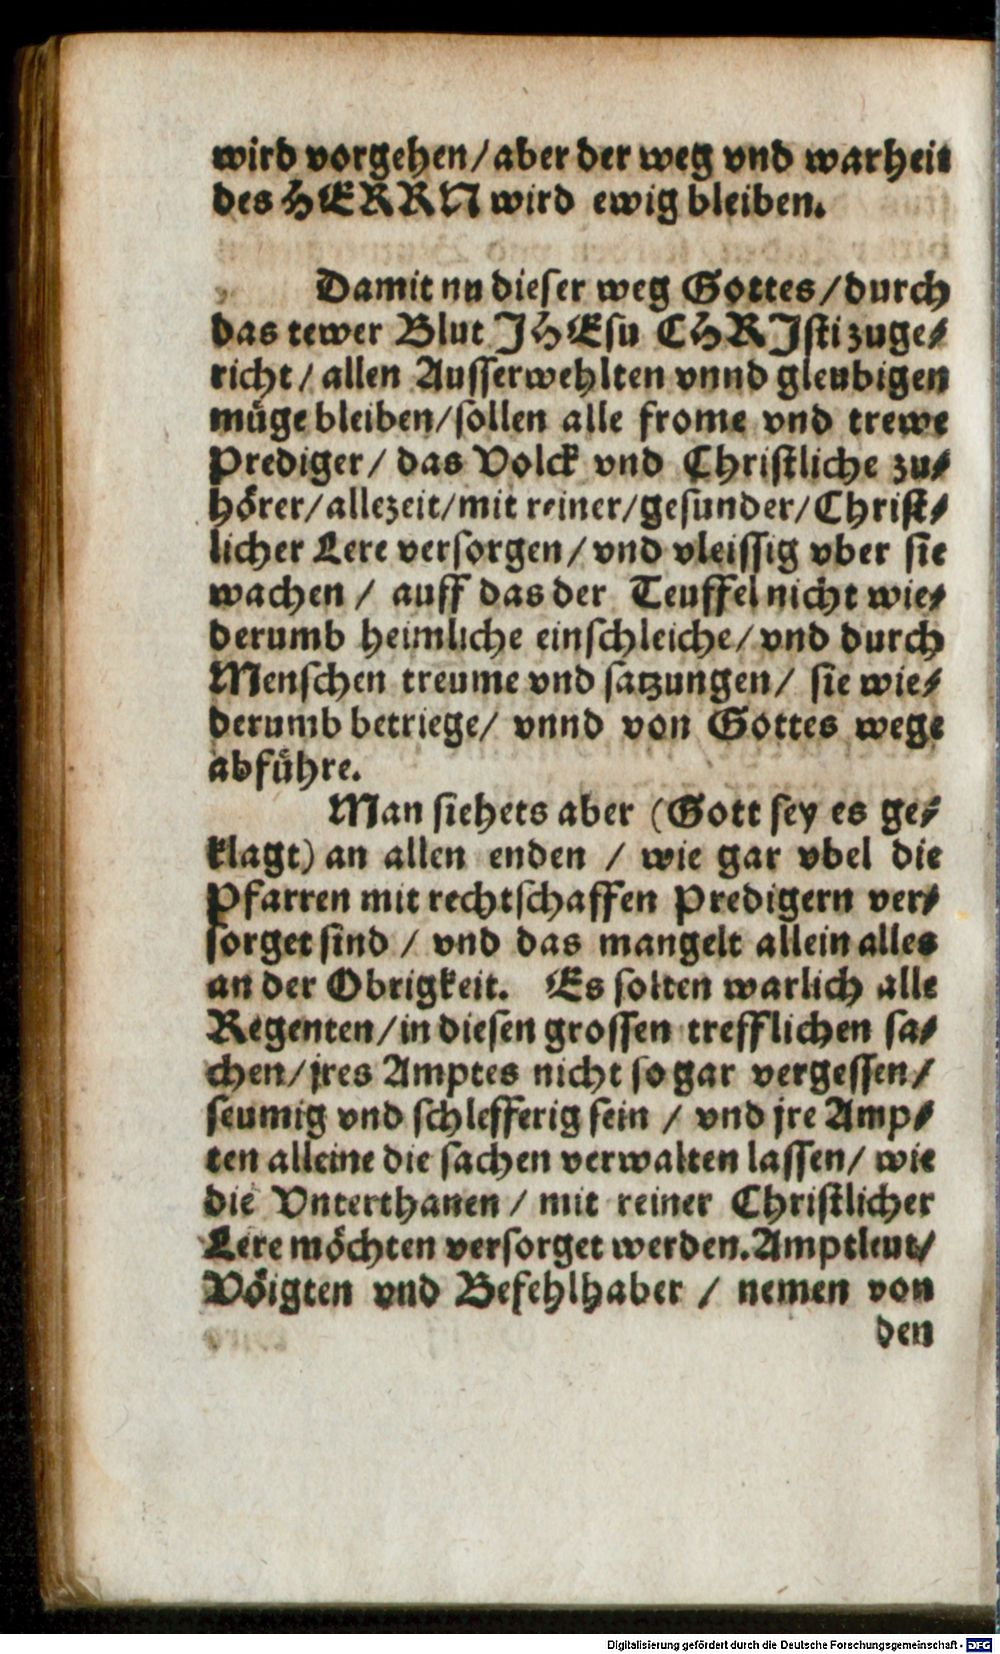 wird vorgehen/aber der weg vnd warheit
des HERRN wird ewig bleiben.
Damit nu dieser weg Gottes/durch
das tewer Blut JHEsu CHRJsti zuge⸗
richt/allen Ausserwehlten vnnd gleubigen
müge bleiben/sollen alle frome vnd trewe
Prediger/das Volck vnd Christliche zu⸗
hörer/allezeit/mit reiner/gesunder/Christ⸗
licher Lere versorgen/vnd vleissig vber sie
wachen/auff das der Teuffel nicht wie⸗
derumb heimliche einschleiche/vnd durch
Menschen treume vnd satzungen/sie wie⸗
derumb betriege/vnnd von Gottes wege
abführe.
Man siehets aber (Gott sey es ge⸗
klagt) an allen enden/wie gar vbel die
Pfarren mit rechtschaffen Predigern ver⸗
sorget sind/vnd das mangelt allein alles
an der Obrigkeit. Es solten warlich alle
Regenten/in diesen grossen trefflichen sa⸗
chen/jres Amptes nicht so gar vergessen/
seumig vnd schlefferig sein/vnd jre Amp⸗
ten alleine die sachen verwalten lassen/wie
die Vnterthanen/mit reiner Christlicher
Lere möchten versorget werden. Amptleut/
Vöigten vnd Befehlhaber/nemen von
den
Digitalisierung gefördert durch die Deutsche Forschungsgemeinschaft - DFG